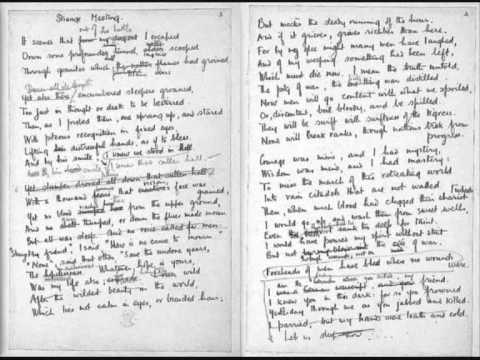 Strange Meeting.
out of the battle
It seems that I escaped
Down some profounder tunnel, scooped
Through granites which had groined
Down all its length
Yet also there encumbered sleepers groaned,
Too fast in thought or death to be bestirred.
Then, as I probed them, one sprang up, and stared
With piteous recognition in fixed eyes,
Lifting distressful hands, as if to bless.
And by his smile, I knew we stood in Hell
Yet slumber droned all down that sullen hall
With a thousand that vision's face was grained,
Yet no blood from the upper ground,
And no thumped, or down the flues made moan.
But all was sleep. And no voice called
"Strange friend," I said "Here is no cause to mourn"
"None," said that other "Save the undone years,
The Whatever hope is yours,
Was my life also; wild
After the wildest beauty in the world,
Which lies not calm in eyes, or braided hair,
But mocks the steady running of the hour,
And if it grieves, grieves richlier than here.
For by my glee might many men have laughed,
And of my weeping something has been left,
Which must die now. I mean the truth untold,
The pity of war, the thing war distilled.
Now men will go content with what we spoiled,
Or, discontent, boil bloody, and be spilled.
They will be swift with swiftness of the tigress.
None will break ranks, though nations trek from
progress.
Courage was mine, and I had mystery,
Wisdom was mine, and I had mastery:
To miss the march of this retreating world
Into vain citadels that are not walled.
Then, when much blood had clogged their chariot
I would go up and wash them from sweet wells,
Even
I would have poured my spirit without stint
But not of war.
Foreheads of men have bled when no wounds
were.
I am the friend.
I knew you in this dark: for so you frowned
Yesterday through me as you jabbed and killed.
I parried, but my hands were loath and cold.
Let us